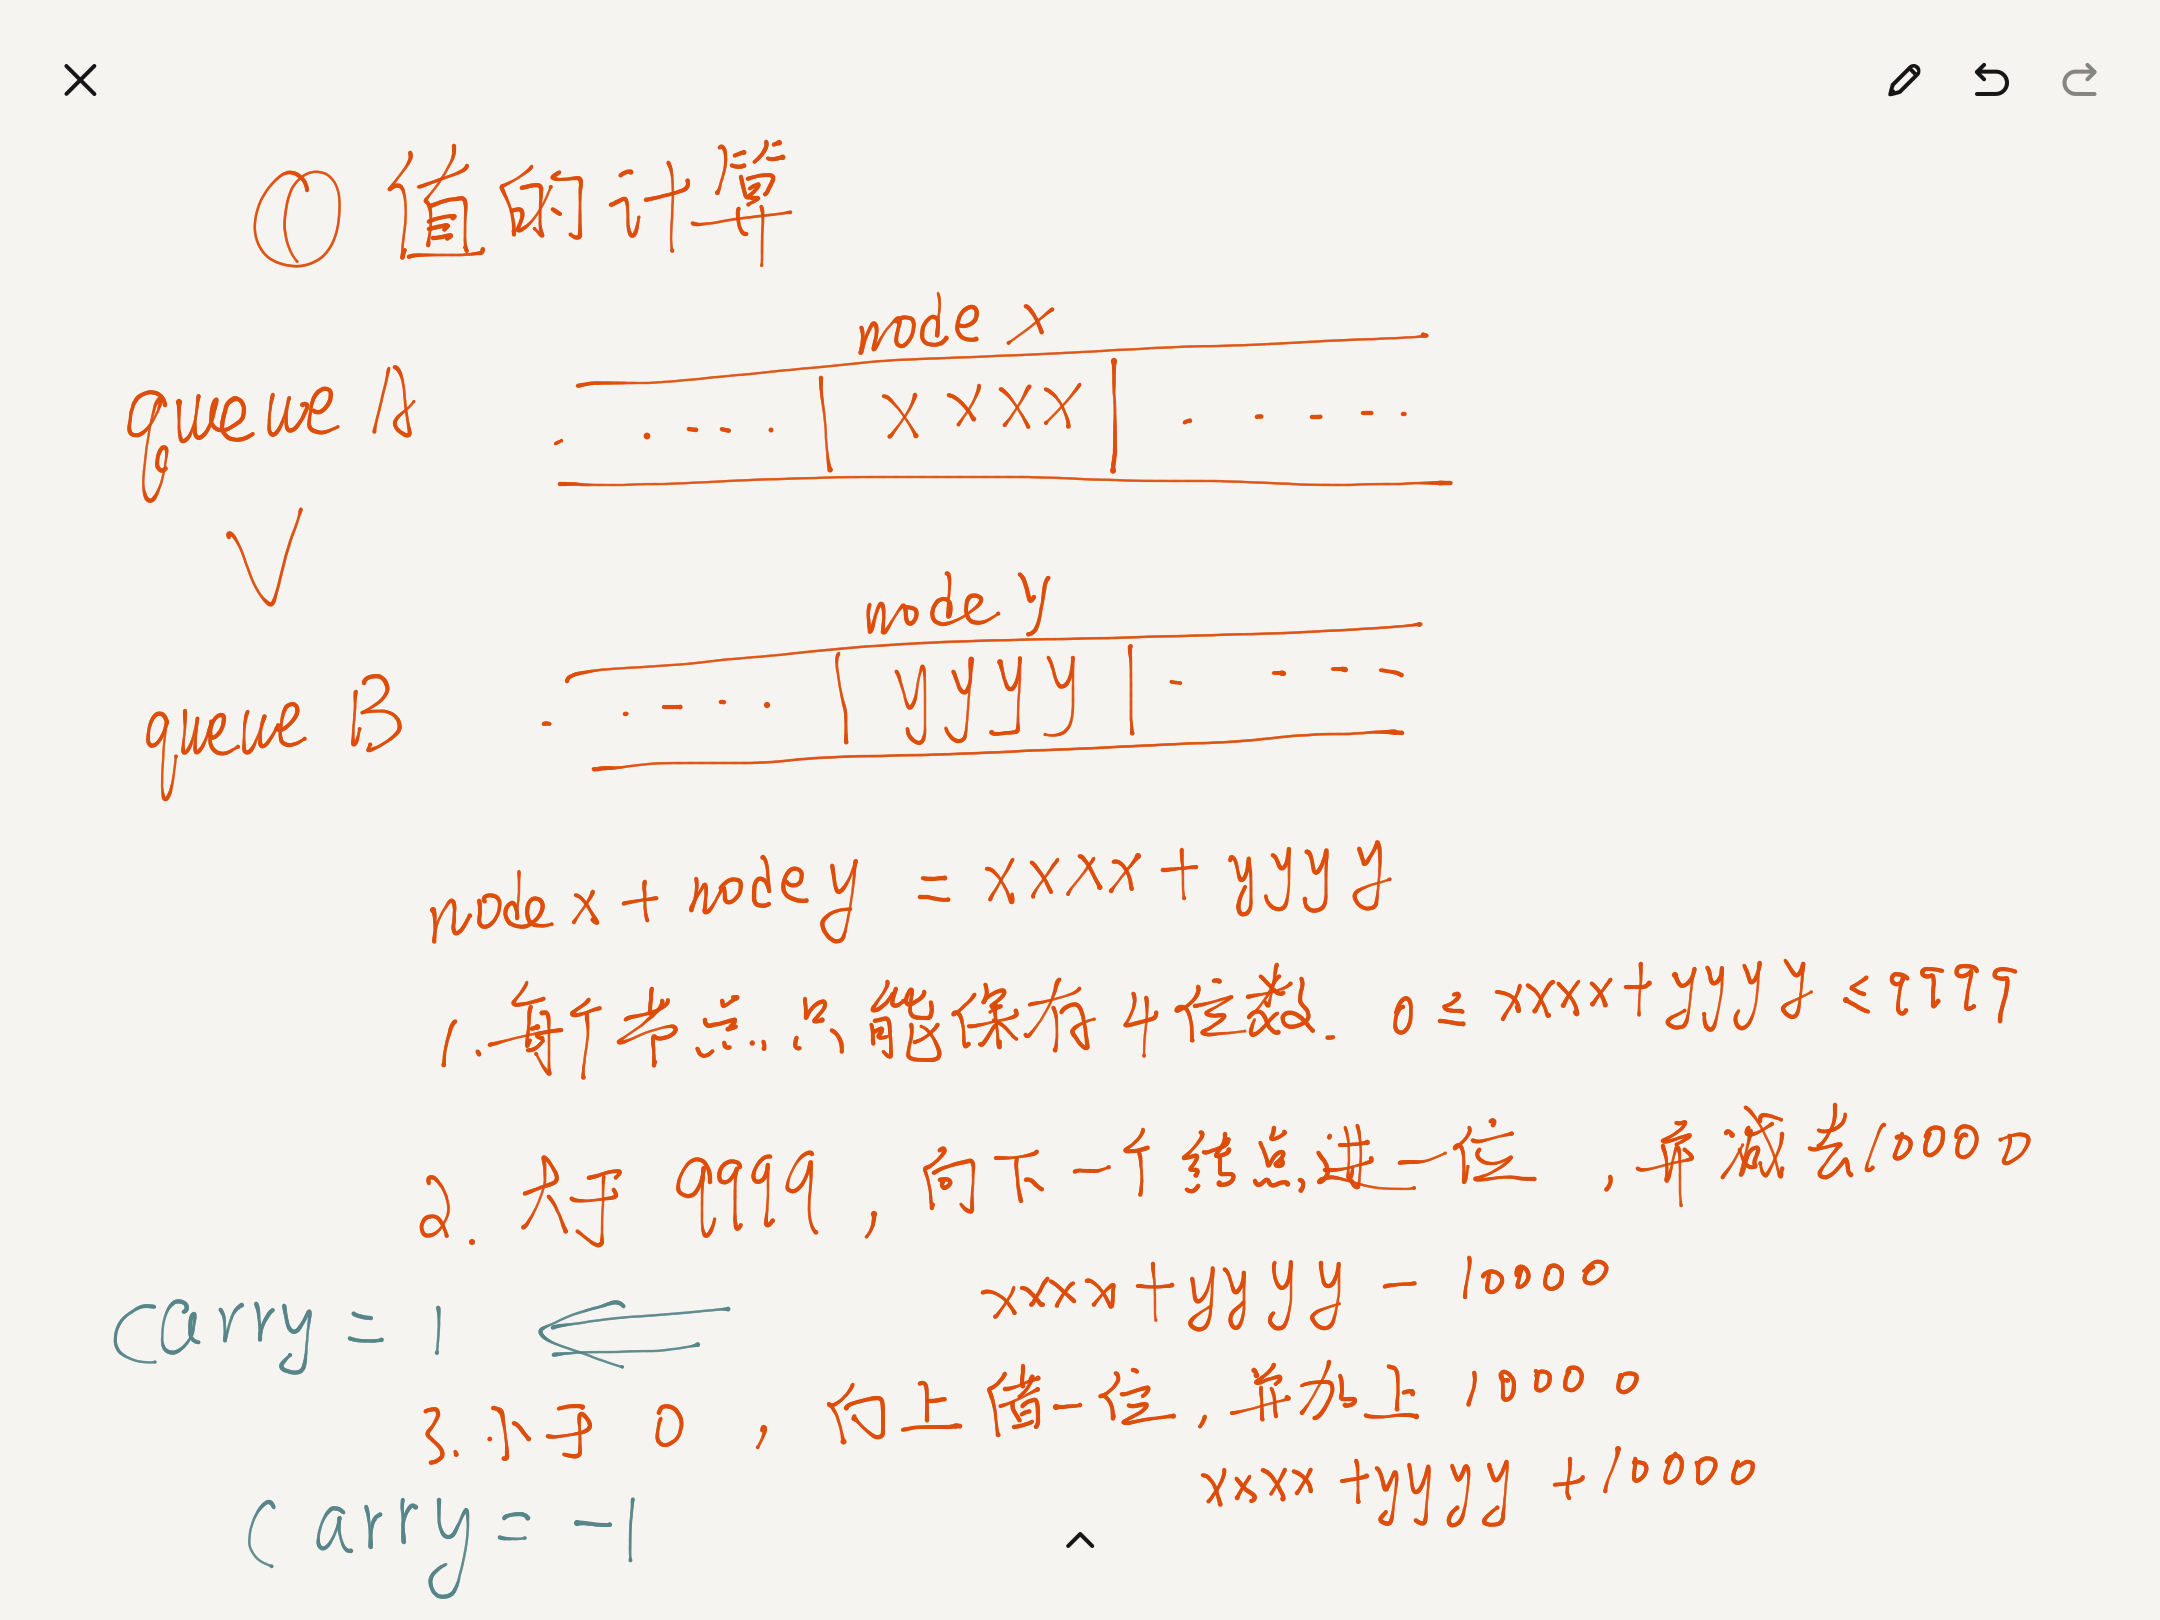 ① 值的计算
node x
queue A . . - - . | x x x x | . - - - .
V
node y
queue B . . - - . | y y y y | - - - -
node x + node y = xxxx + yyyy
1. 每个节点只能保存4位数. 0 ≤ xxxx + yyyy ≤ 9999
2. 大于 9999 , 向下一个结点进一位 , 并减去10000
xxxx + yyyy - 10000
carry = 1 ⇐
3. 小于 0 , 向上借一位 , 并加上 10000
xxxx + yyyy + 10000
carry = -1